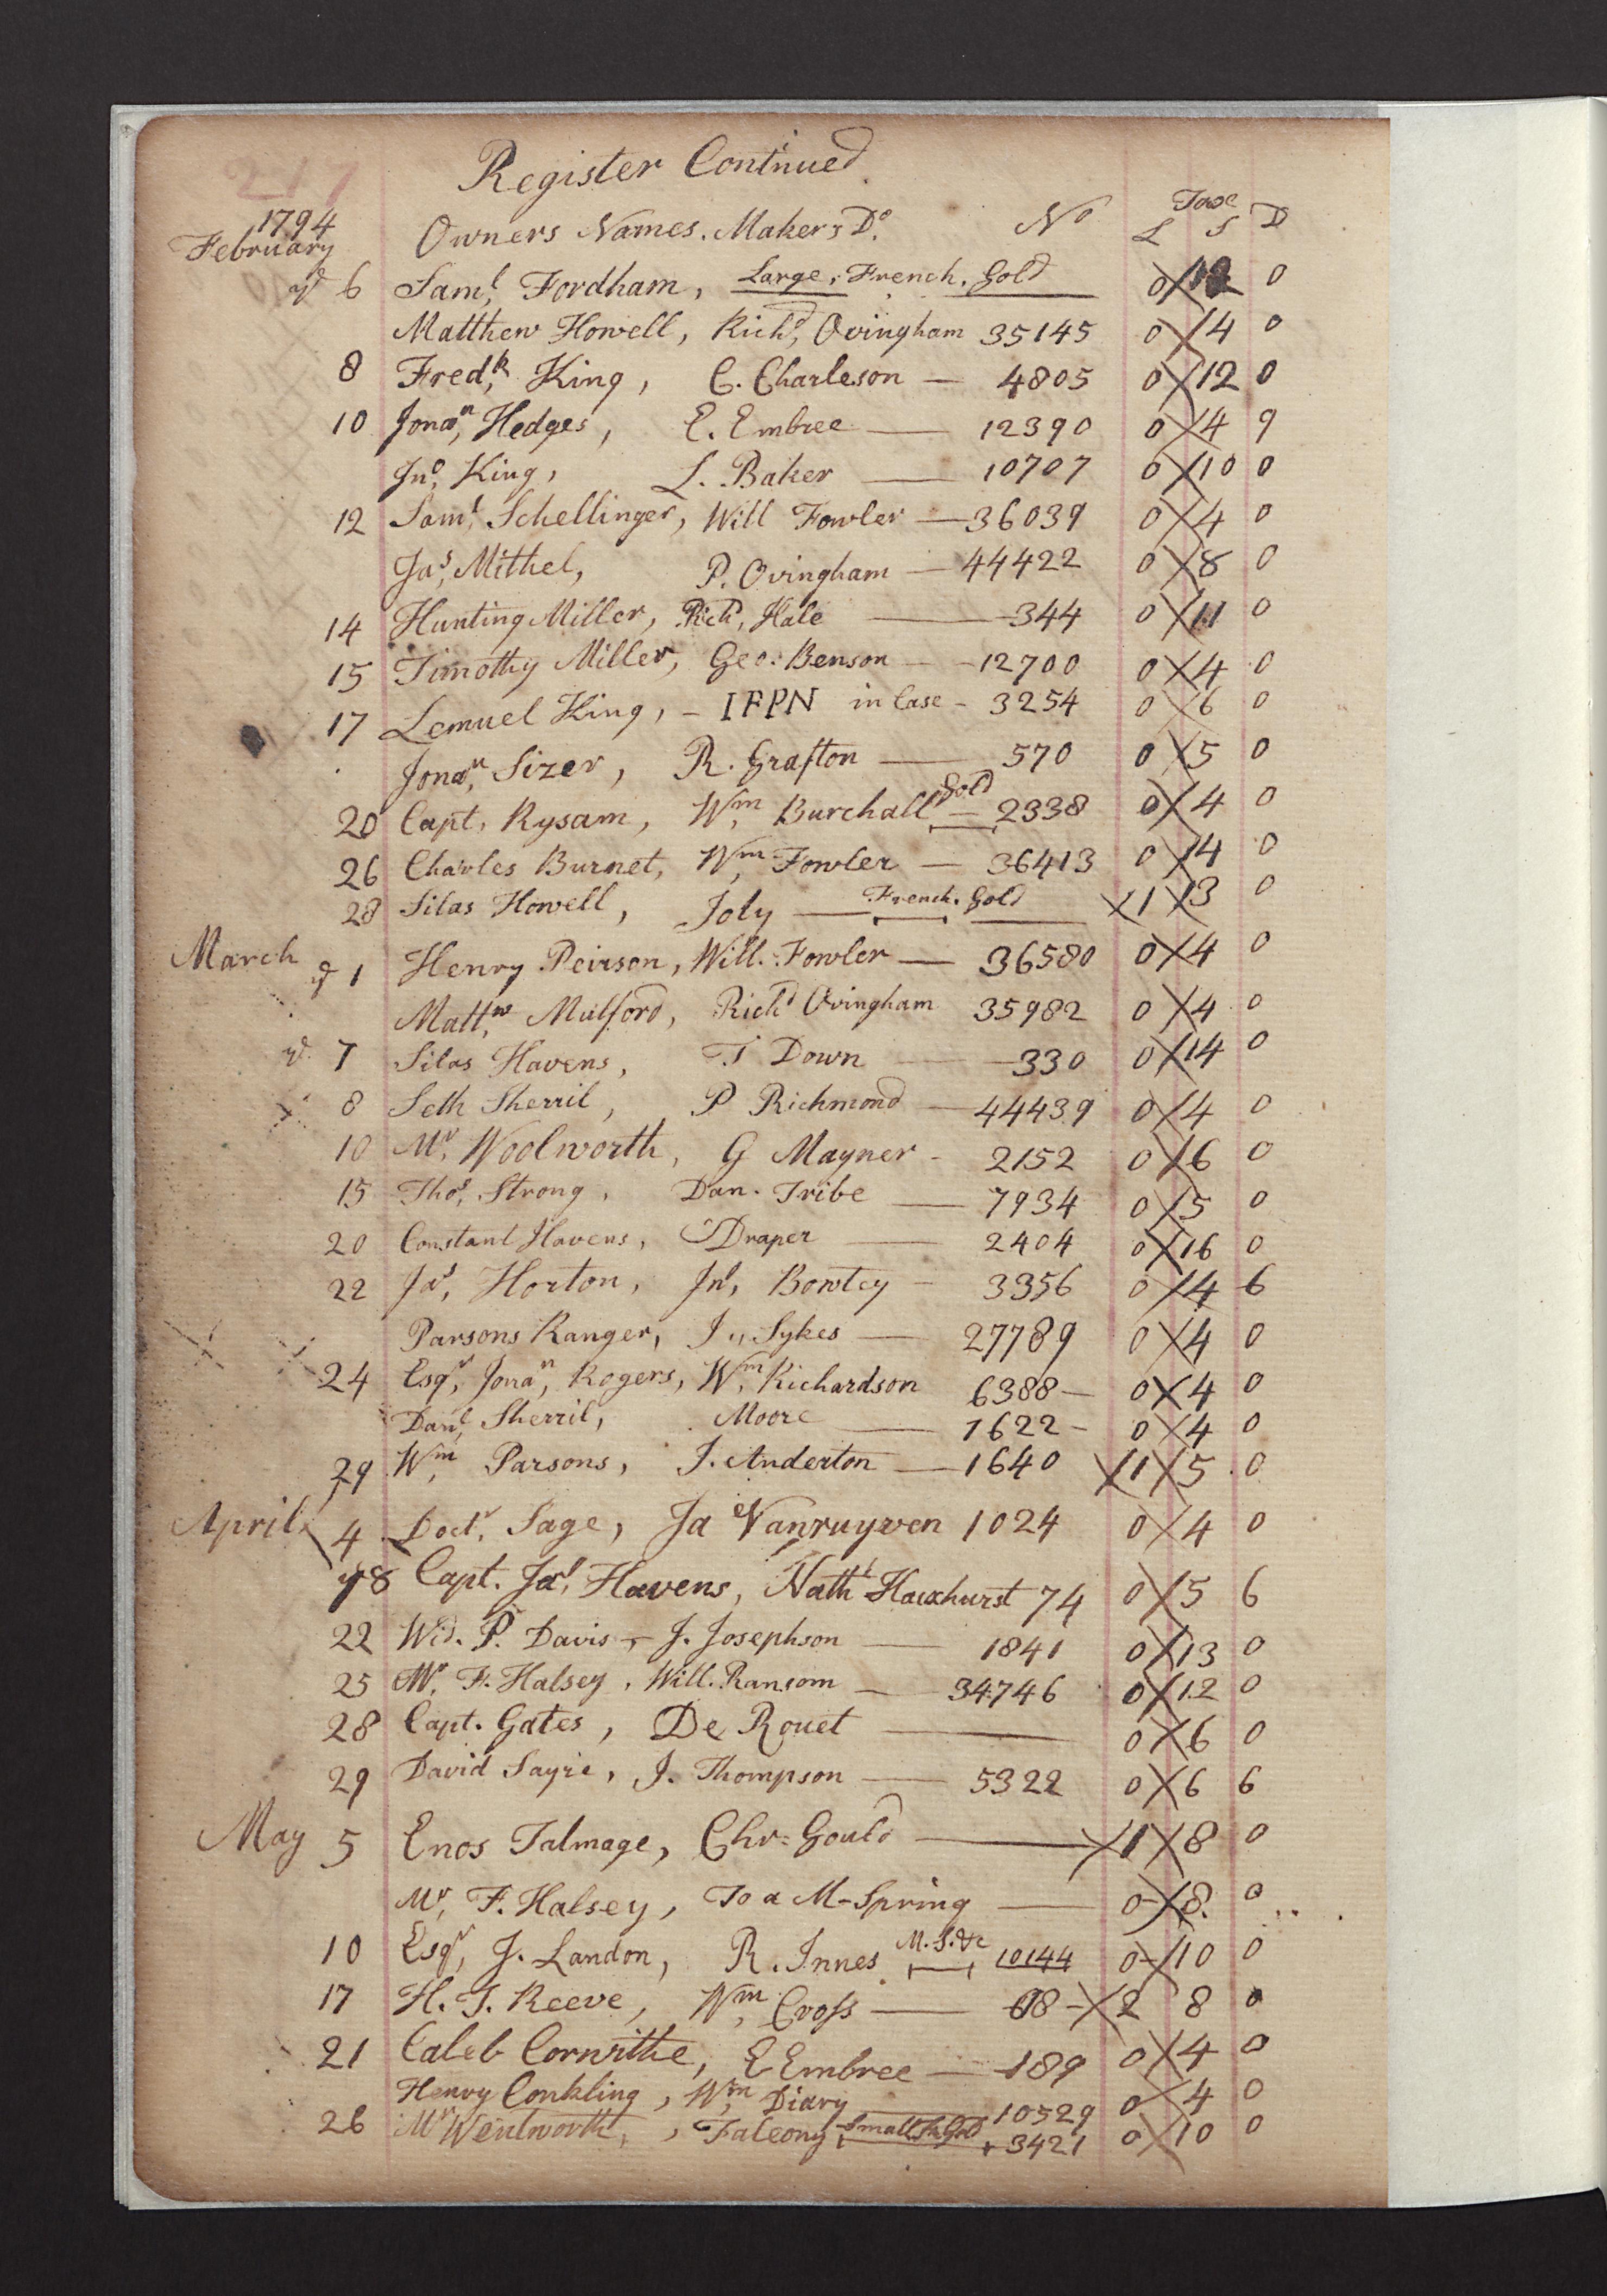 Register Continued
1794 Owners Names. Makers Do. No Taxe
February L S D
6 Saml, Fordham, Large, French, Gold 0 12 0
Matthew Howell, Richd, Ovingham 35145 0 4 0
8 Fredk, King, C. Charleson — 4805 0 12 0
10 Jonan, Hedges, E. Embree — 12390 0 4 9
Jno, King, L. Baker — 10707 0 10 0
12 Saml, Schellinger, Will Fowler — 36039 0 4 0
Jas, Mithel, P. Ovingham — 44422 0 8 0
14 Hunting Miller, Richd, Hale — 344 0 11 0
15 Timothy Miller, Geo: Benson — 12700 0 4 0
17 Lemuel King, – IFPN in Case – 3254 0 6 0
Jonan, Sizer, R. Grafton — 570 0 5 0
20 Capt, Rysam, Wm, Burchall Gold — 2338 0 4 0
26 Charles Burnet, Wm, Fowler — 36413 0 14 0
28 Silas Howell, Joly — French. Gold 1 13 0
March 1 Henry Peirson, Will. Fowler — 36580 0 4 0
Mattw, Mulford, Richd Ovingham 35982 0 4 0
7 Silas Havens, T Down — 330 0 14 0
8 Seth Sherril, P Richmond — 44439 0 4 0
10 Mr, Woolworth, G Mayner – 2152 0 16 0
15 Thos, Strong, Dan. Tribe — 7934 0 5 0
20 Constant Havens, Draper — 2404 0 16 0
22 Jas, Horton, Jno, Bowtey – 3356 0 4 6
Parsons Ranger, J,, Sykes — 27789 0 4 0
24 Esqr, Jonan, Rogers, Wm, Richardson 6388 — 0 4 0
Danl, Sherril, Moore — 1622 – 0 4 0
29 Wm, Parsons, J. Anderton — 1640 1 5 0
April 4 Doctr, Sage, Ja Vanruyven 1024 0 4 0
18 Capt. Jas, Havens, Nathl Haxhurst 74 0 5 6
22 Wid. P. Davis, – J. Josephson — 1841 0 13 0
25 Mr, F. Halsey, Will. Ransom — 34746 0 12 0
28 Capt. Gates, De Rouet — 0 6 0
29 David Sayre, J. Thompson — 5322 0 6 6
May 5 Enos Talmage, Chr= Gould — 1 8 0
Mr, F. Halsey, To a M-Spring — 0 8 0
10 Esqr, J. Landon, R. Innes M.S. &c 10144 0 10 0
17 H. T. Reeve, Wm, Cross — 68 – 2 8 0
21 Caleb Corwithe, E Embree — 189 0 4 0
Henry Conkling, Wm, Diary — 10529 0 4 0
26 Mr Wentworth, Falcony Small Fr Gold 3421 0 10 0